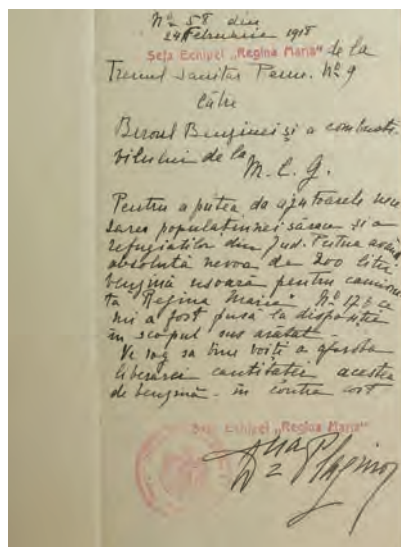 Nº 58 din
24 Februarie 1918
Șefa Echipei „Regina Maria" de la
Trenul Sanitar Perm. Nº 9
Către
Biroul Benzinei și a combusti-
bilului de la M. C. G.
Pentru a putea da ajutoarele nece-
sare populațiunei sărace și a
refugiaților din Jud. Putna având
absolută nevoe de 200 litri
benzină ușoară pentru camione-
ta "Regina Maria" Nº 176 ce
mi a fost pusă la dispoziție
în scopul sus arătat.
Vă rog să bine voiți a aproba
liberarea cantităței acestea
de benzină - în contra cost
Șefa Echipei „Regina Maria"